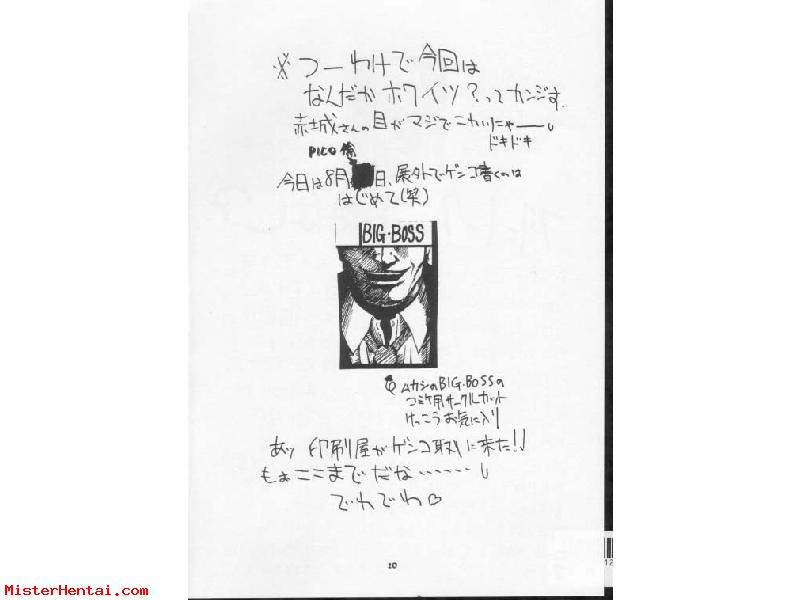 ※ つーわけで今回は
なんだか ホワイツ?ってカンジす。
赤城さんの目がマジでこわいにゃー
ドキドキ
PICO
今日は8月 日、屋外でゲンコ書くのは
はじめて(笑)
BIG・BOSS
ムカシのBIG・BOSSの
コミケ用サークルカット
けっこうお気に入り
あッ 印刷屋がゲンコ取りに来た!!
もぉここまでだな……
でわでわ♡
10
12
MisterHentai.com